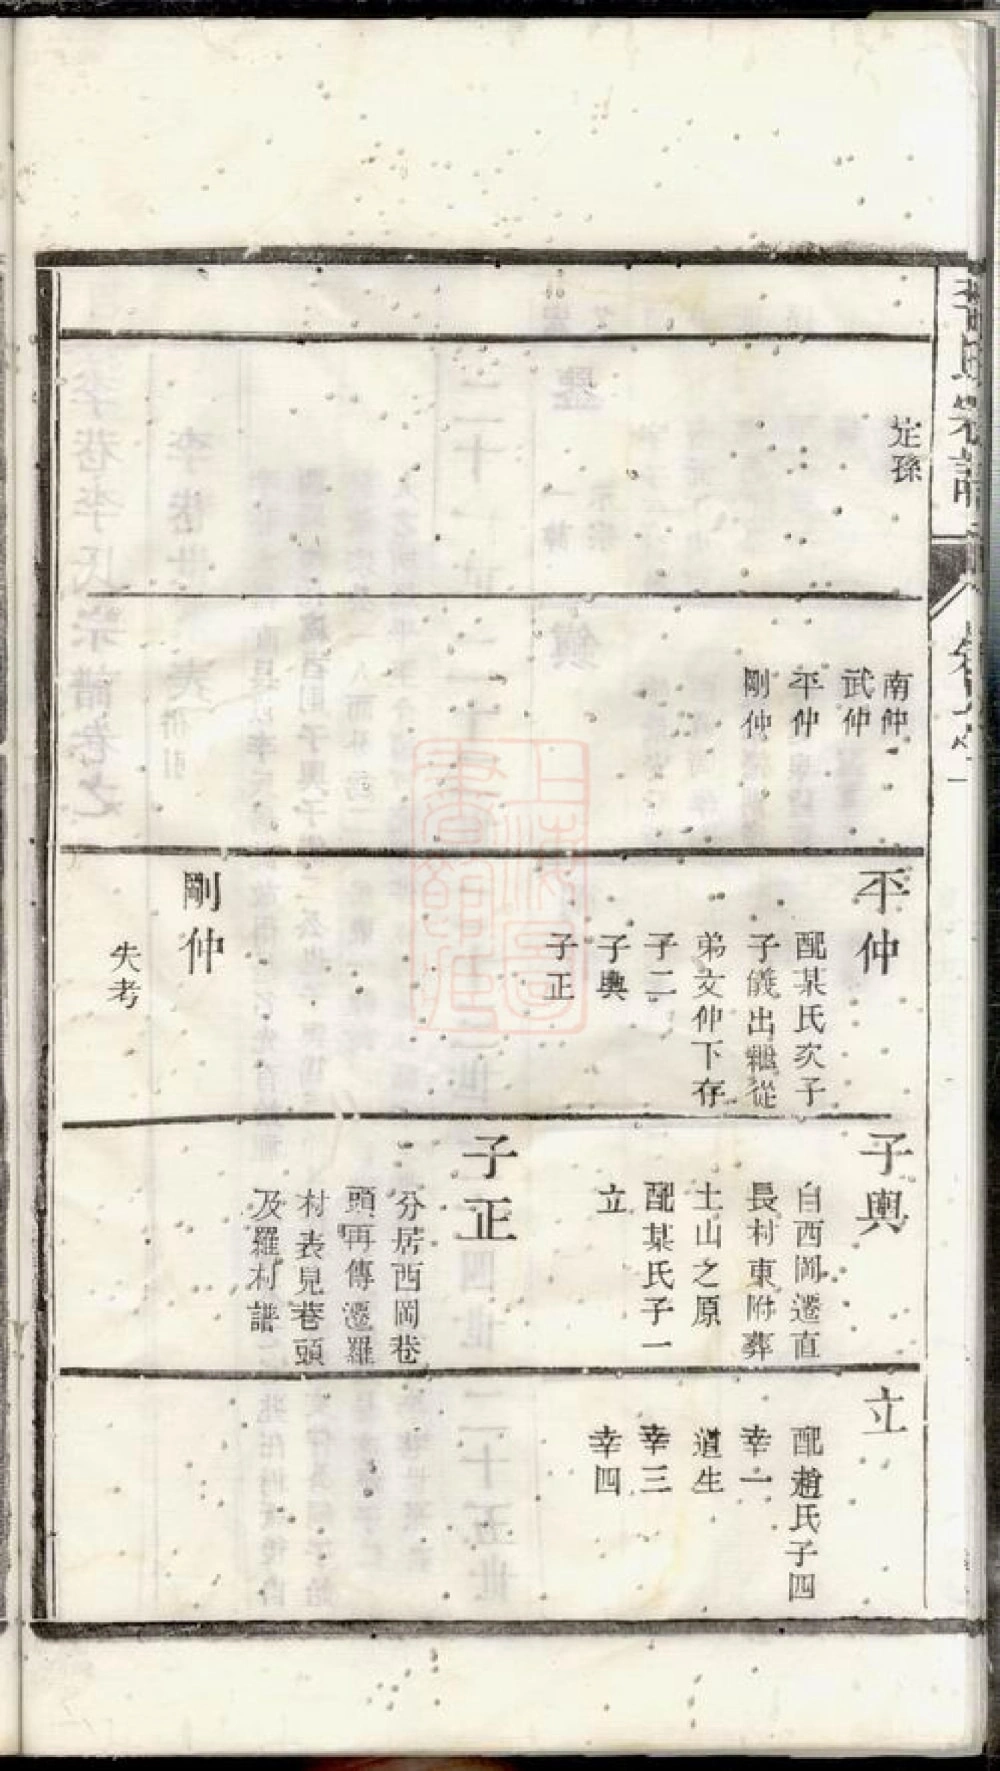 定孫
南仲
武仲
平仲
剛仲
平仲
配某氏次子
子儀出繼從
弟文仲下存
子二
子輿
子正
剛仲
失考
子輿
自西岡遷直
長村東附葬
土山之原
配某氏子一
立
子正
分居西岡巷
頭再傳遷羅
村表見巷頭
及羅村譜
立
配趙氏子四
幸一
道生
幸三
幸四
上海圖書館藏